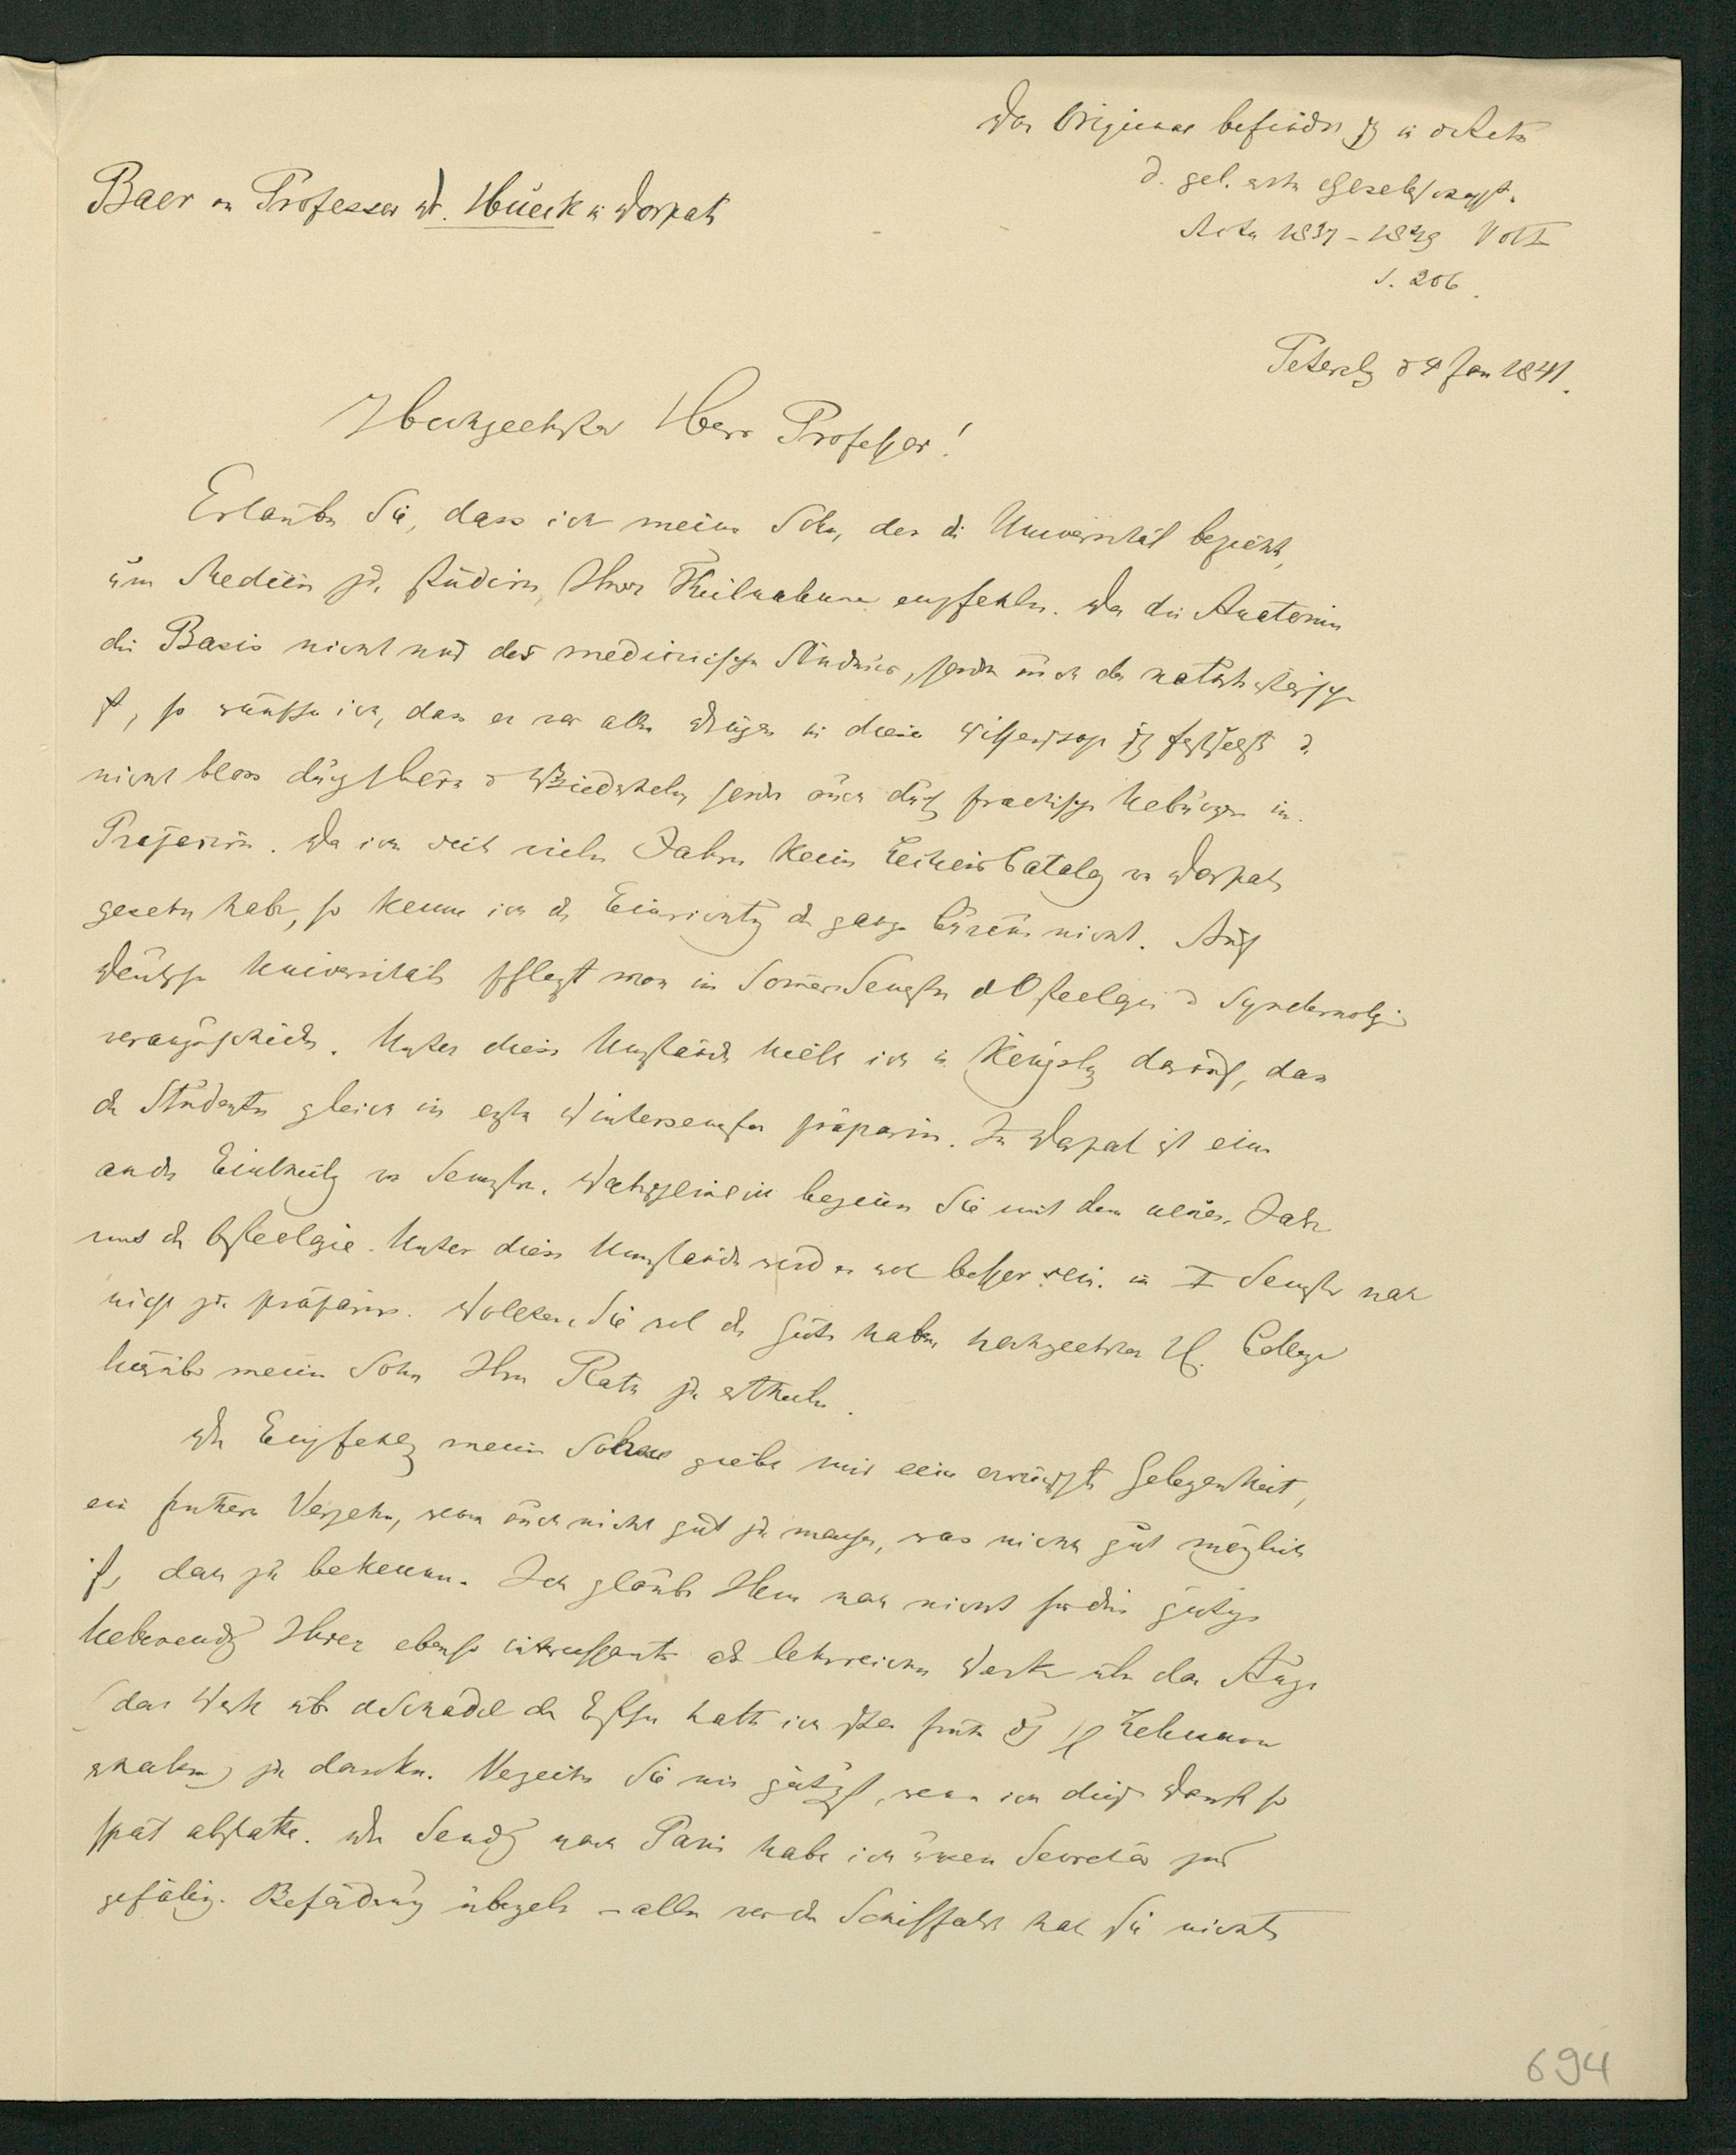 Das Original befindet sich in d Acten
d. gel. estn Gesellschaft.
Acta 1837–1849 Vol I
S. 206.
Baer an Professor Dr. Hueck in Dorpat
Petersbg d 4 Jan 1841.
Hochgeehrter Herr Professor!
Erlauben Sie, dass ich meinen Sohn, der die Universität bezieht,
um Medicin zu studiren, Ihrer Theilnahme empfehle. Da die Anatomie
die Basis nicht nur des medicinischen Studiums, sondern auch der naturhistorischen
ist, so wünsche ich, dass er vor allen Dingen in dieser Wissenschaft sich festsetzt u
nicht bloss durch Hören u Wiederholen sondern auch durch practische Uebungen im
Präpariren. Da ich seit vielen Jahren keinen Lections Catalog von Dorpat
gesehen habe, so kenne ich die Einrichtung des ganzen Cursus nicht. Auf
Deutschen Universitäten pflegt man im Sommer Semester d Osteologie u Syndesmologie
voranzuschicken. Unter diesen Umständen hielt ich in Königsbg darauf, dass
die Studenten gleich im ersten Wintersemester präpariren. In Dorpat ist eine
andere Eintheilung der Semester. Wahrscheinlich beginnen Sie mit dem neuen Jahr
mit der Osteologie. Unter diesen Umständen wird es wol besser sein im I Semester noch
nicht zu präpariren. Wollten Sie wol die Güte haben hochgeehrter H. College
hierüber meinem Sohn Ihren Rath zu ertheilen.
Die Empfehlung meines Sohnes giebt mir eine erwünschte Gelegenheit,
ein früheres Versehen, wenn auch nicht gut zu machen, was nicht gut möglich
ist, doch zu bekennen. Ich glaube Ihnen noch nicht für die gütige
Uebersendung Ihres ebenso interessanten als lehrreichen Werks über das Auge
(das Werk über d Schädel der Esthen hatte ich schon früher durch H Lehmann
erhalten) zu danken. Verzeihen Sie mir gütigst, wenn ich diesen Dank so
spät abstatte. Die Sendung nach Paris habe ich unserem Secretär zur
gefälligen Beförderung übergeben – allein vor der Schifffahrt hat sie nicht
694